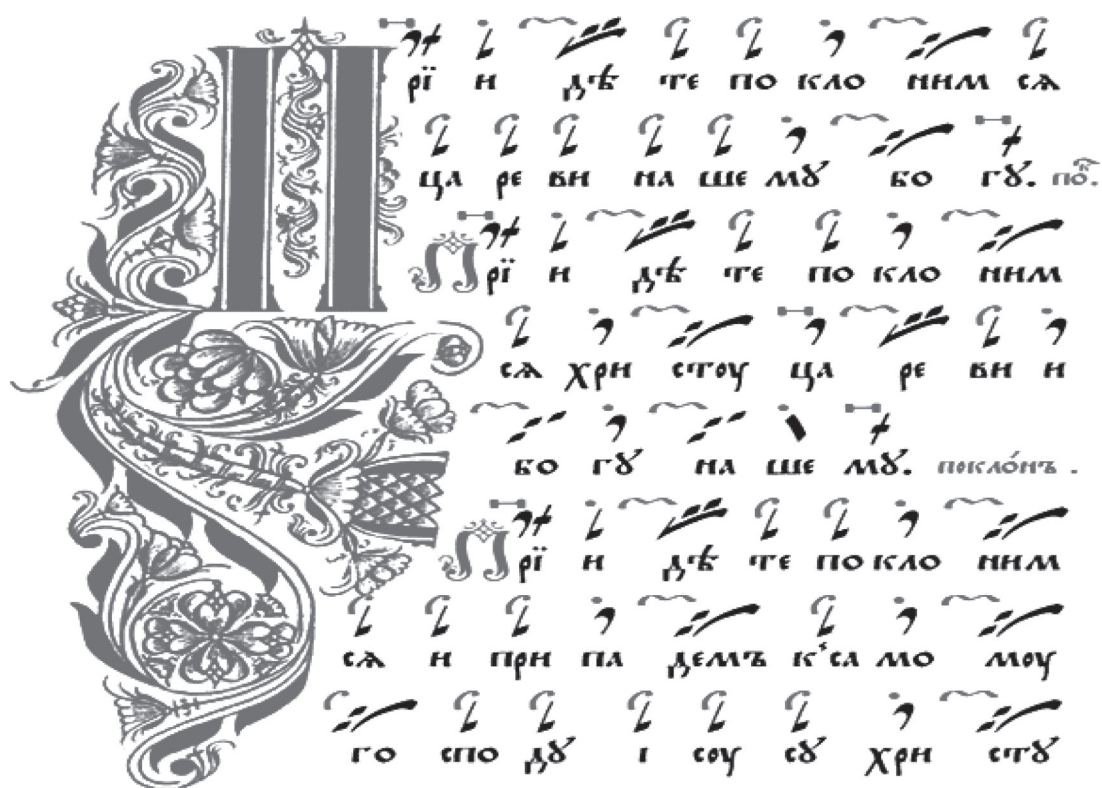 Прїи дѣ те по кло ним сѧ
ца ре ви на ше мꙋ бо гꙋ. по̑к.
Прїи дѣ те по кло ним
сѧ хри стоу ца ре ви и
бо гꙋ на ше мꙋ. покло́нъ .
Прїи дѣ те по кло ним
сѧ и при па демъ к̾са мо моу
го спо дꙋ і соу сꙋ хри стꙋ